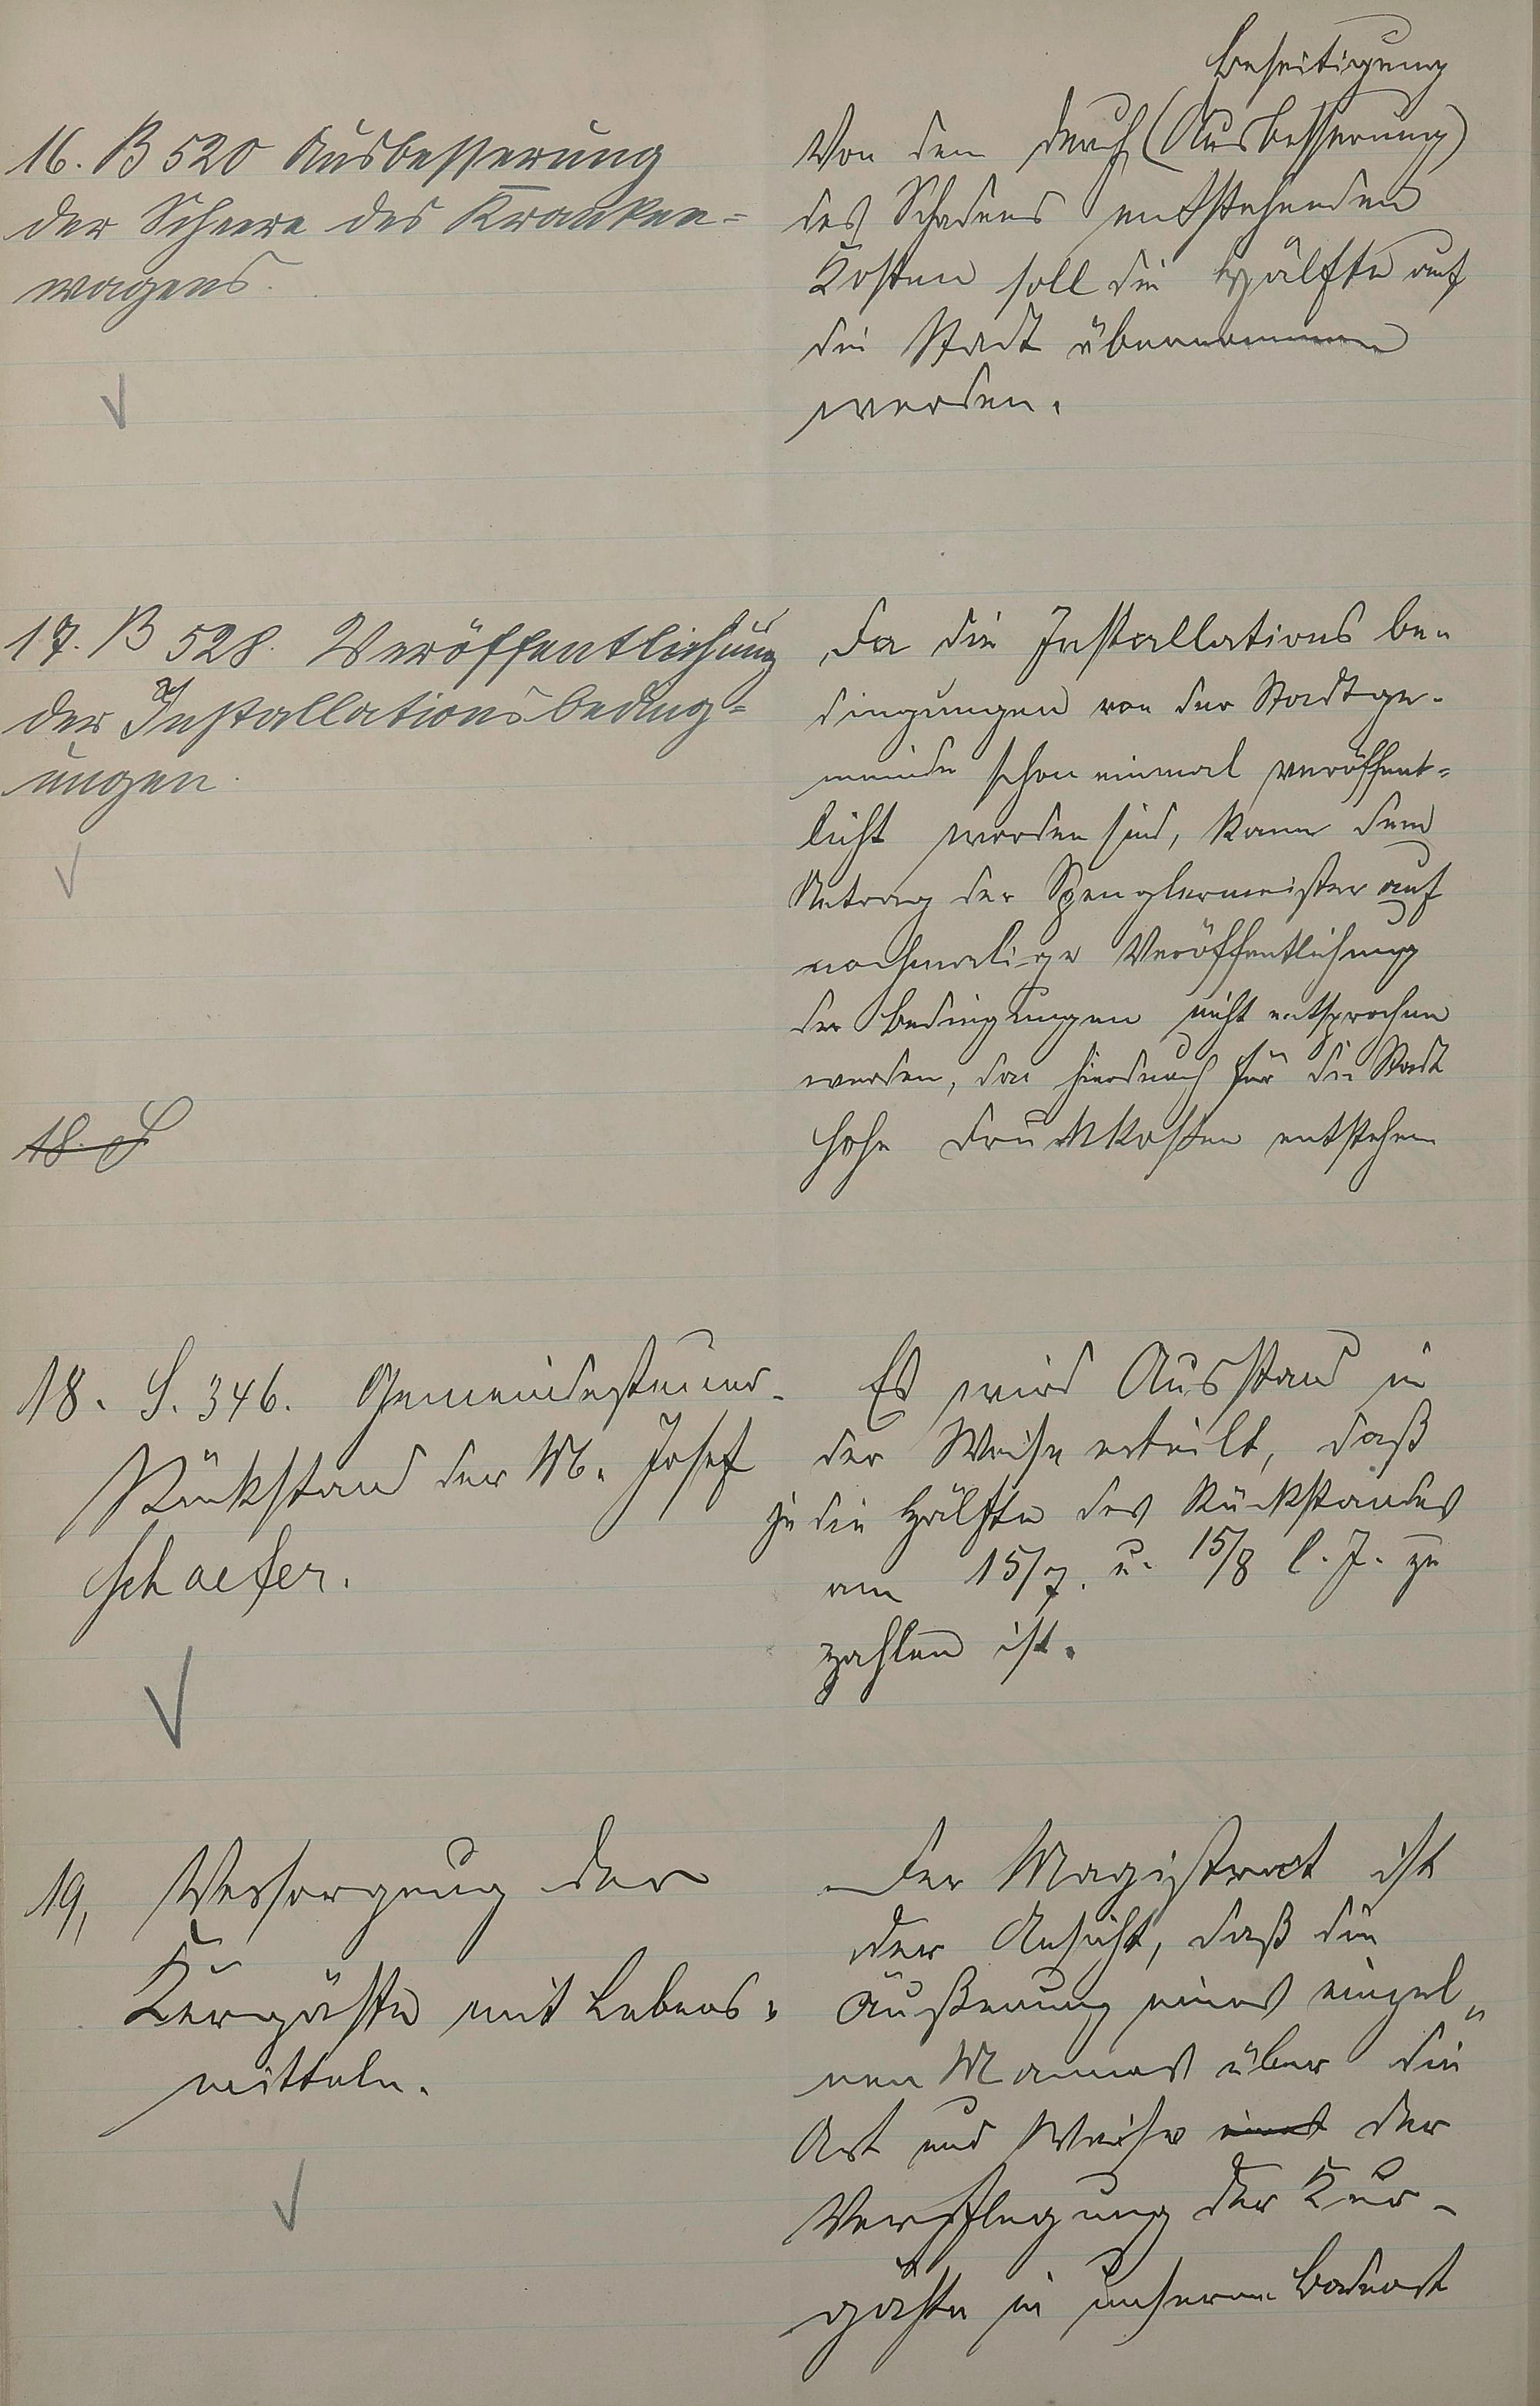 16. B 520 Ausbesserung
der Scheere des Kranken=
wagens.
Beseitigung
Von den durch (Ausbesserung)
des Schadens entstehenden
Kosten soll die Hälfte auf
die Stadt übernommen
werden.
17. B 528. Veröffentlichung
der Installationsbeding=
ungen.
Da die Installations be-
dingungen von der Stadtge-
meinde schon einmal veröffent=
licht worden sind, kann dem
Antrag der Spenglermeister auf
nochmalige Veröffentlichung
der Bedingungen nicht entsprochen
werden, da hierdurch für die Stadt
hohe Druckkosten entstehen
18. S
18. S. 346. Gemeindesteuer-
Rückstand der M. Josef
Schaefer.
Es wird Ausstand in
der Weise erteilt, daß
je die Hälfte des Rückstandes
am 15/7. u. 15/8 l. J. zu
zahlen ist.
19, Versorgung der
Kurgäste mit Lebens=
mitteln.
Der Magistrat ist
der Ansicht, daß die
Äußerung eines einzel=
nen Mannes über die
Art und Weise eines der
Verpflegung der Kur-
gäste in unserem Badeort